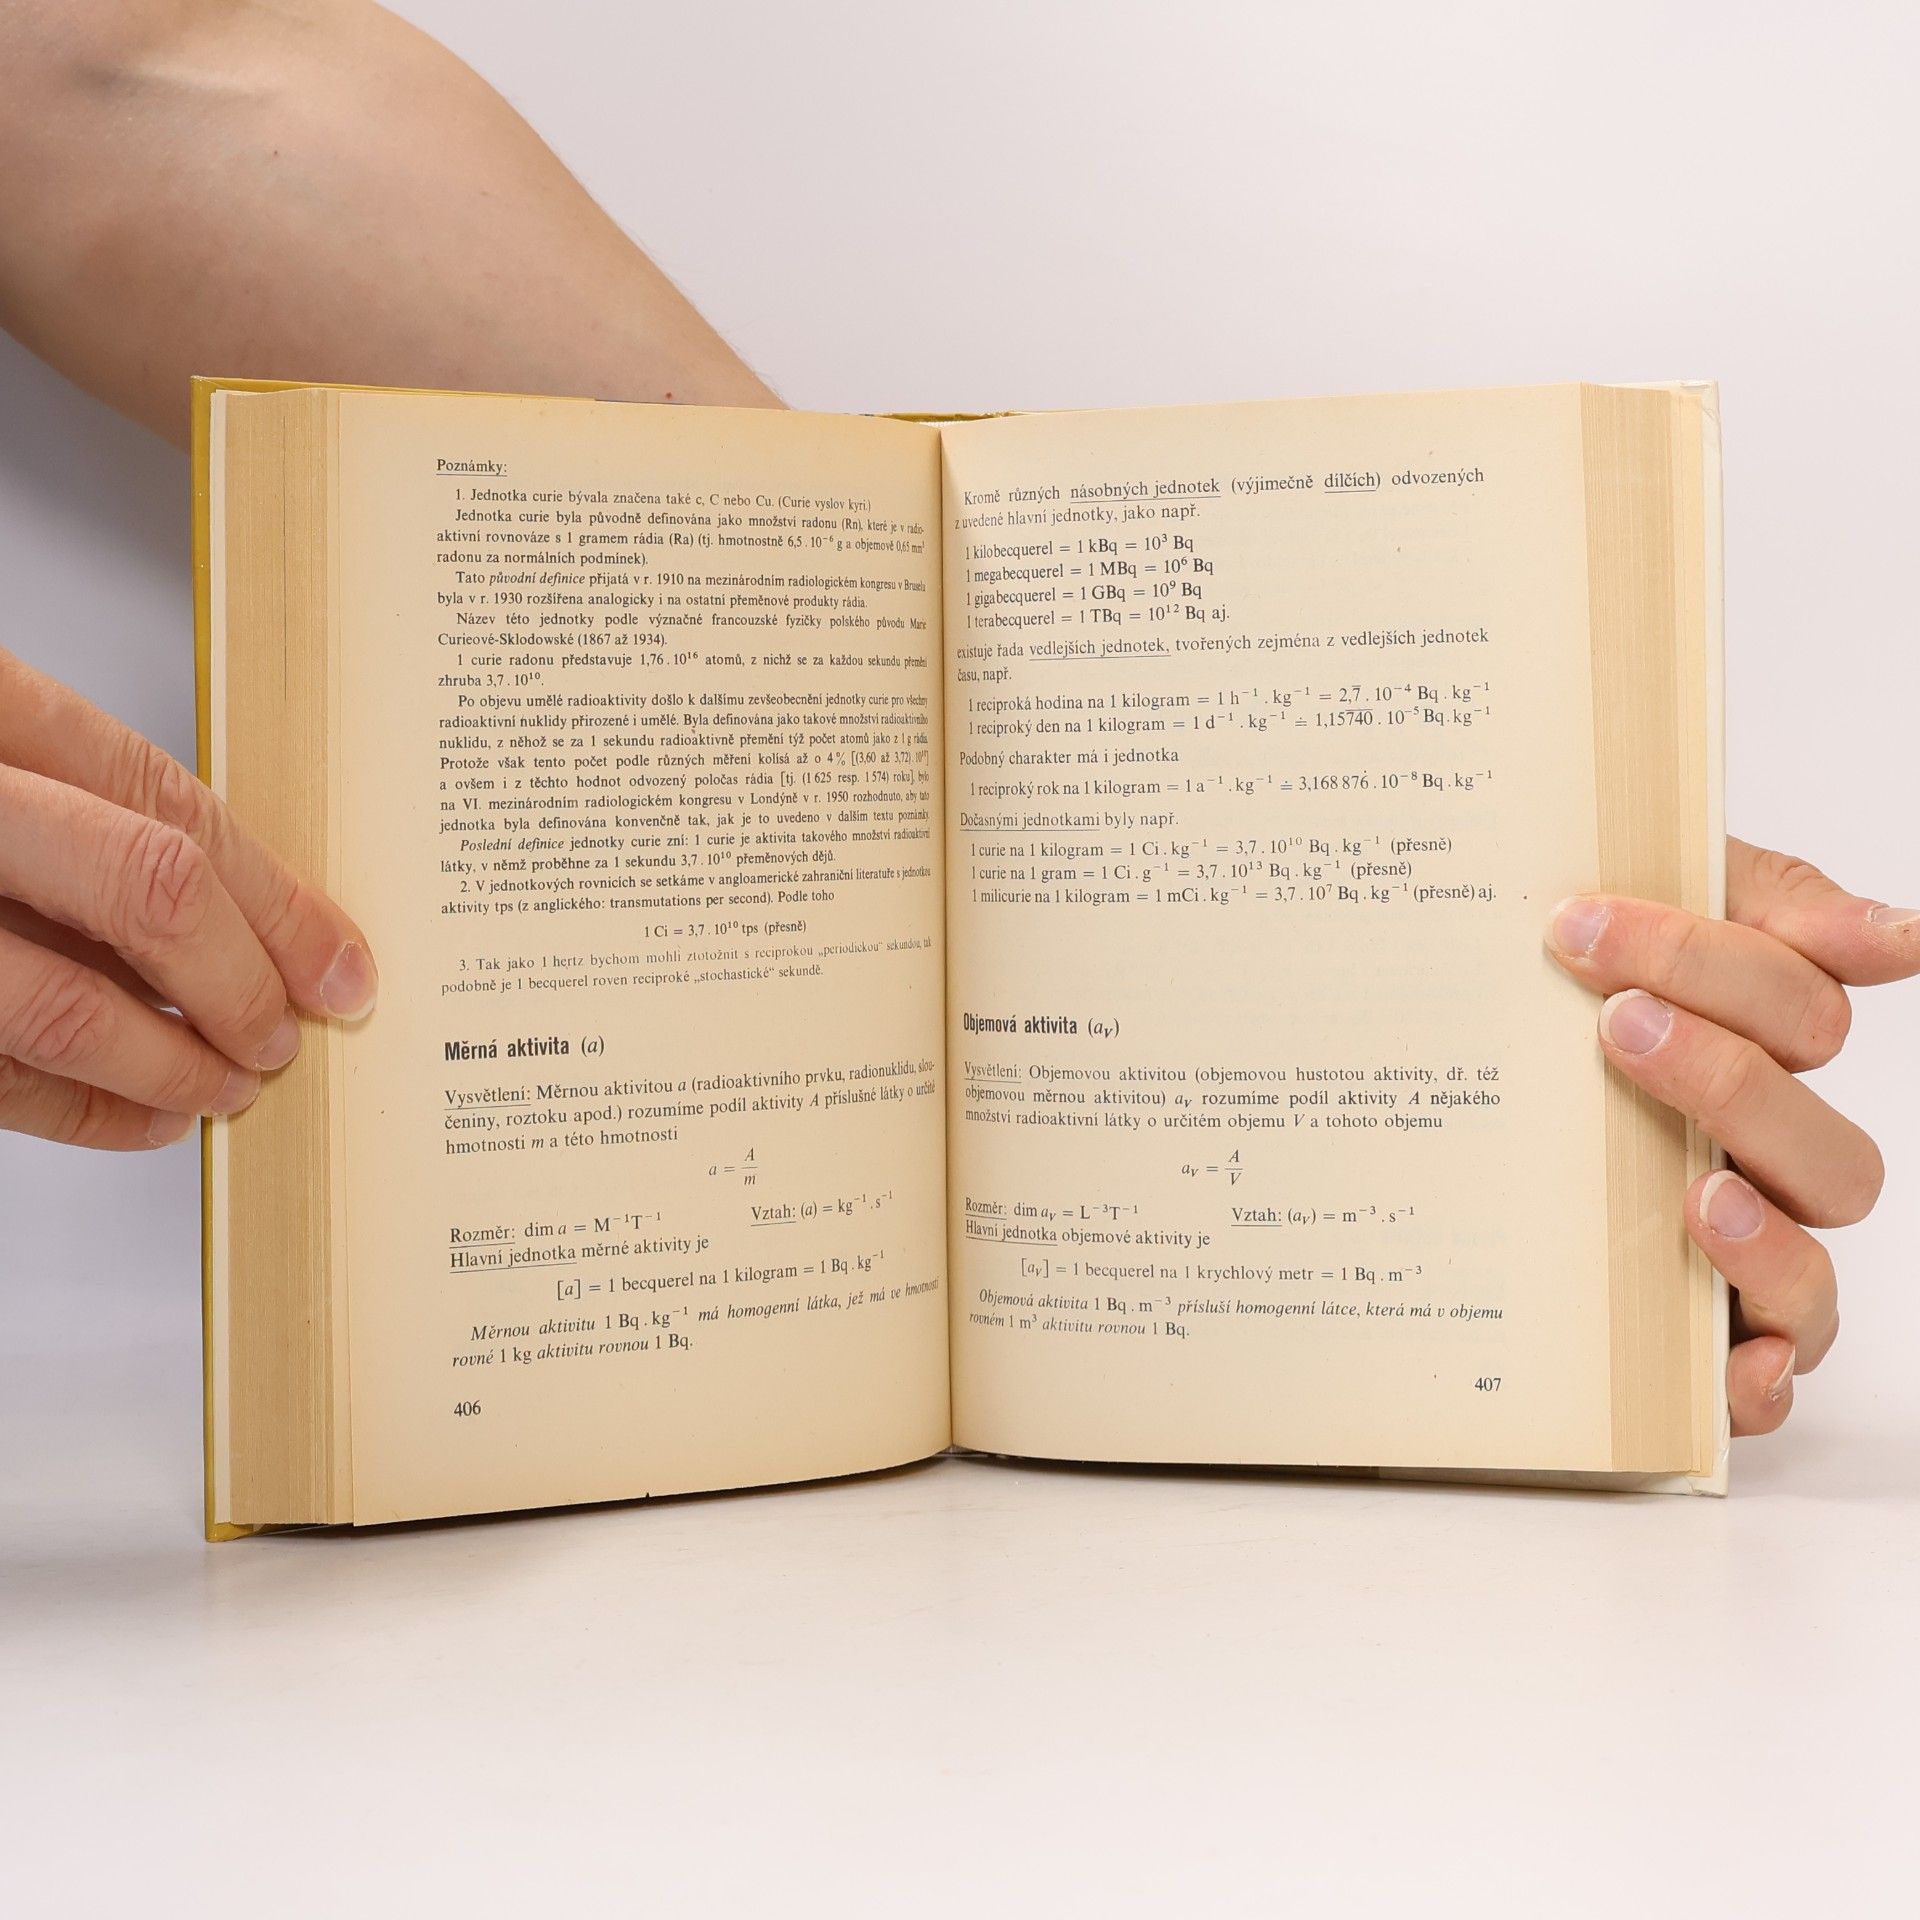 Poznámky:
1. Jednotka curie bývala značena také c, C nebo Cu. (Curie vyslov kyri.)
Jednotka curie byla původně definována jako množství radonu (Rn), které je v radio-
aktivní rovnováze s 1 gramem rádia (Ra) (tj. hmotnostně 6,5 . 10⁻⁶ g a objemově 0,65 mm³
radonu za normálních podmínek).
Tato původní definice přijatá v r. 1910 na mezinárodním radiologickém kongresu v Bruselu
byla v r. 1930 rozšířena analogicky i na ostatní přeměnové produkty rádia.
Název této jednotky podle význačné francouzské fyzičky polského původu Marie
Curieové-Sklodowské (1867 až 1934).
1 curie radonu představuje 1,76 . 10¹⁶ atomů, z nichž se za každou sekundu přemění
zhruba 3,7 . 10¹⁰.
Po objevu umělé radioaktivity došlo k dalšímu zevšeobecnění jednotky curie pro všechny
radioaktivní nuklidy přirozené i umělé. Byla definována jako takové množství radioaktivního
nuklidu, z něhož se za 1 sekundu radioaktivně přemění týž počet atomů jako z 1 g rádia.
Protože však tento počet podle různých měření kolísá až o 4 % [(3,60 až 3,72) . 10¹⁰]
a ovšem i z těchto hodnot odvozený poločas rádia [tj. (1 625 resp. 1 574) roku], bylo
na VI. mezinárodním radiologickém kongresu v Londýně v r. 1950 rozhodnuto, aby tato
jednotka byla definována konvenčně tak, jak je to uvedeno v dalším textu poznámky.
Poslední definice jednotky curie zní: 1 curie je aktivita takového množství radioaktivní
látky, v němž proběhne za 1 sekundu 3,7 . 10¹⁰ přeměnových dějů.
2. V jednotkových rovnicích se setkáme v angloamerické zahraniční literatuře s jednotkou
aktivity tps (z anglického: transmutations per second). Podle toho
1 Ci = 3,7 . 10¹⁰ tps (přesně)
3. Tak jako 1 hertz bychom mohli ztotožnit s reciprokou „periodickou“ sekundou, tak
podobně je 1 becquerel roven reciproké „stochastické“ sekundě.
Měrná aktivita (a)
Vysvětlení: Měrnou aktivitou a (radioaktivního prvku, radionuklidu, slou-
čeniny, roztoku apod.) rozumíme podíl aktivity A příslušné látky o určité
hmotnosti m a této hmotnosti
a = A/m
Rozměr: dim a = M⁻¹T⁻¹ Vztah: (a) = kg⁻¹ . s⁻¹
Hlavní jednotka měrné aktivity je
[a] = 1 becquerel na 1 kilogram = 1 Bq . kg⁻¹
Měrnou aktivitu 1 Bq . kg⁻¹ má homogenní látka, jež má ve hmotnosti
rovné 1 kg aktivitu rovnou 1 Bq.
406
Kromě různých násobných jednotek (výjimečně dílčích) odvozených
z uvedené hlavní jednotky, jako např.
1 kilobecquerel = 1 kBq = 10³ Bq
1 megabecquerel = 1 MBq = 10⁶ Bq
1 gigabecquerel = 1 GBq = 10⁹ Bq
1 terabecquerel = 1 TBq = 10¹² Bq aj.
existuje řada vedlejších jednotek, tvořených zejména z vedlejších jednotek
času, např.
1 reciproká hodina na 1 kilogram = 1 h⁻¹ . kg⁻¹ = 2,7̅ . 10⁻⁴ Bq . kg⁻¹
1 reciproký den na 1 kilogram = 1 d⁻¹ . kg⁻¹ ≐ 1,157̅4̅0̅ . 10⁻⁵ Bq . kg⁻¹
Podobný charakter má i jednotka
1 reciproký rok na 1 kilogram = 1 a⁻¹ . kg⁻¹ ≐ 3,168 876 . 10⁻⁸ Bq . kg⁻¹
Dočasnými jednotkami byly např.
1 curie na 1 kilogram = 1 Ci . kg⁻¹ = 3,7 . 10¹⁰ Bq . kg⁻¹ (přesně)
1 curie na 1 gram = 1 Ci . g⁻¹ = 3,7 . 10¹³ Bq . kg⁻¹ (přesně)
1 milicurie na 1 kilogram = 1 mCi . kg⁻¹ = 3,7 . 10⁷ Bq . kg⁻¹ (přesně) aj.
Objemová aktivita (a_V)
Vysvětlení: Objemovou aktivitou (objemovou hustotou aktivity, dř. též
objemovou měrnou aktivitou) a_V rozumíme podíl aktivity A nějakého
množství radioaktivní látky o určitém objemu V a tohoto objemu
a_V = A/V
Rozměr: dim a_V = L⁻³T⁻¹ Vztah: (a_V) = m⁻³ . s⁻¹
Hlavní jednotka objemové aktivity je
[a_V] = 1 becquerel na 1 krychlový metr = 1 Bq . m⁻³
Objemová aktivita 1 Bq . m⁻³ přísluší homogenní látce, která má v objemu
rovném 1 m³ aktivitu rovnou 1 Bq.
407